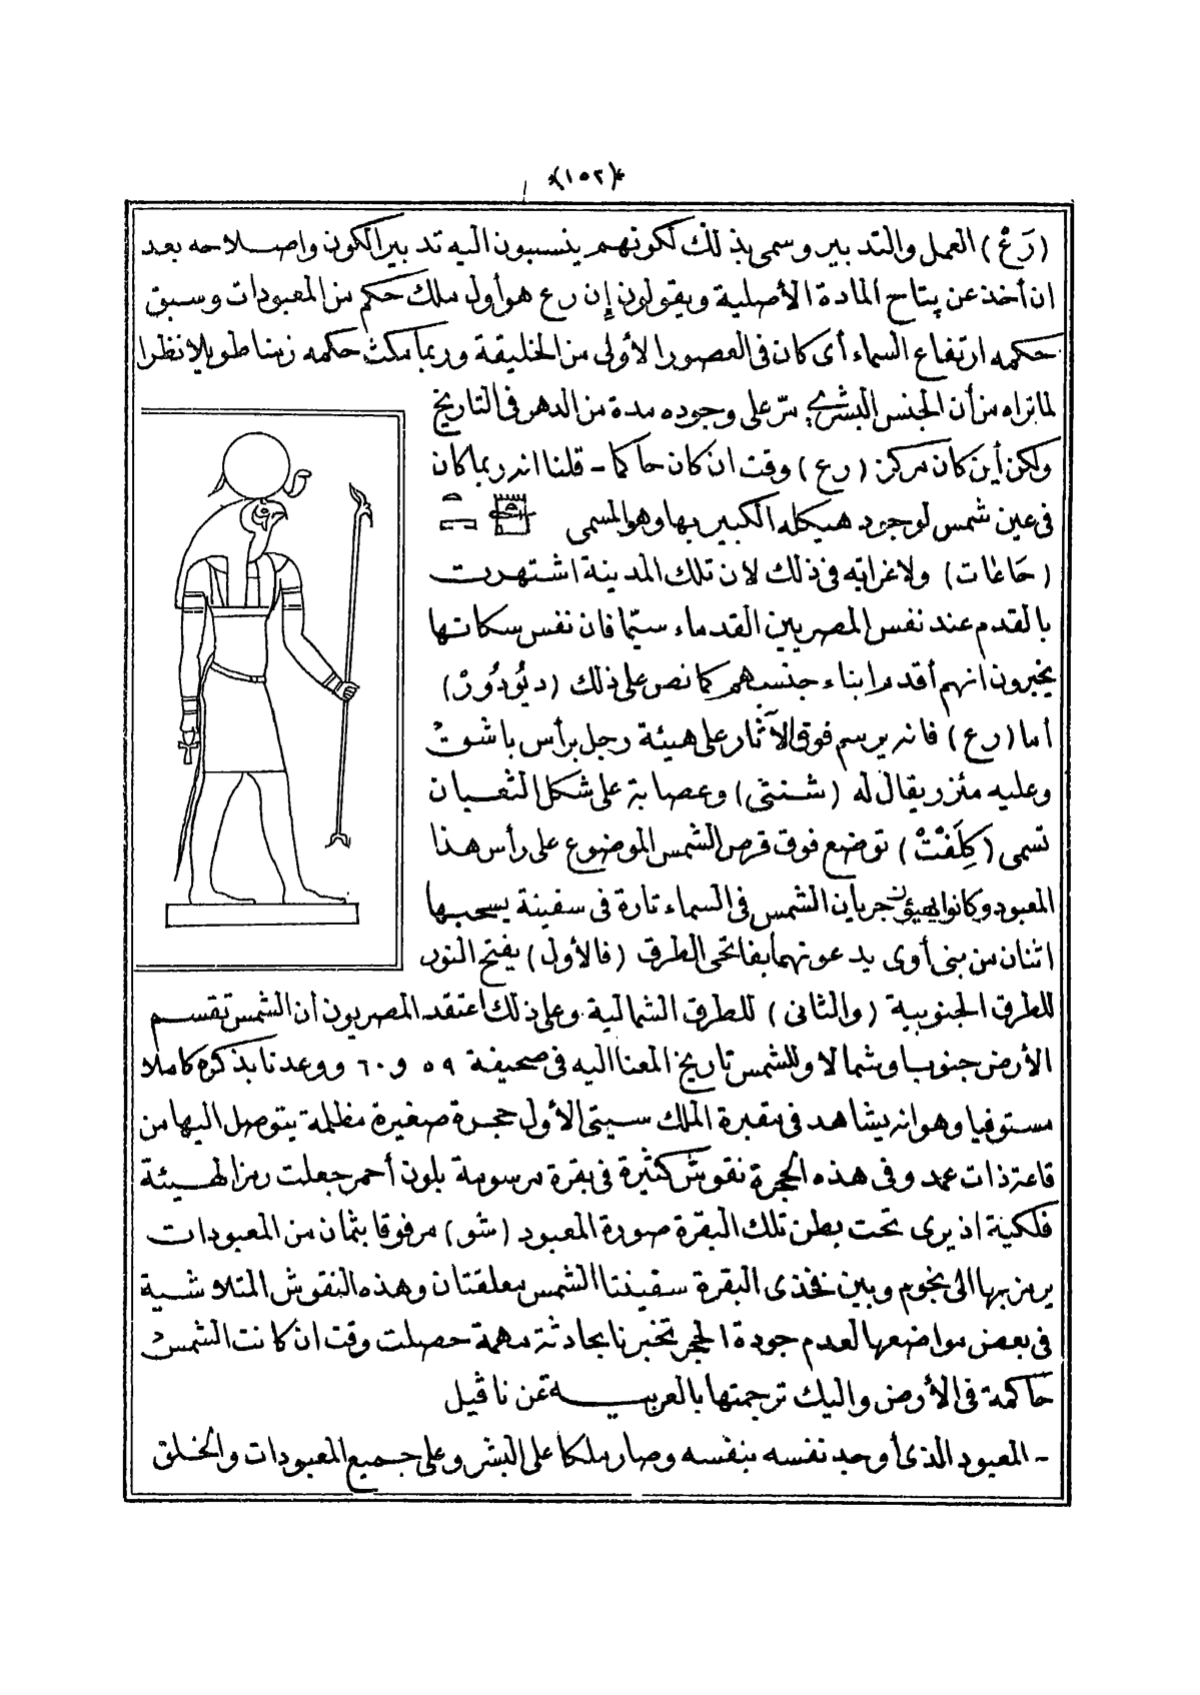 *(١٥٢)*
(رَعْ) العمل والتدبير وسمى بذلك لكونهم ينسبون اليه تدبير الكون واصلاحه بعد
ان أخذ عن پتاح المادة الأصلية ويقولون إن رع هو أول ملك حكم من المعبودات وسبق
حكمه ارتفاع السماء أى كان فى العصور الأولى من الخليقة وربما مكث حكمه زمنا طويلا نظرا
لما نراه من أن الجنس البشرى مرّ على وجوده مدة من الدهر فى التاريخ
ولكن أين كان مركز (رع) وقت ان كان حاكما - قلنا انه ربما كان
فى عين شمس لوجود هيكله الكبير بها وهو المسمى
(حَاعَات) ولا غرابة فى ذلك لان تلك المدينة اشتهرت
بالقدم عند نفس المصريين القدماء سيّما فان نفس سكانها
يخبرون انهم أقدم ابناء جنسهم كما نص على ذلك (ديُودُورْ)
أما (رع) فانه يرسم فوق الآثار على هيئة رجل برأس باشق
وعليه مئزر يقال له (شنتى) وعصابة على شكل الثعبان
تسمى (كِلَفْتْ) توضع فوق قرص الشمس الموضوع على رأس هذا
المعبود وكانوا يهيؤن جريان الشمس فى السماء تارة فى سفينة يسحبها
اثنان من بنى أوى يدعونهما بفاتحى الطرق (فالأول) يفتح النور
للطرق الجنوبية (والثانى) للطرق الشمالية وعلى ذلك اعتقد المصريون أن الشمس تقسم
الأرض جنوبا وشمالا وللشمس تاريخ المعنا اليه فى صحيفة ٥٩ و ٦٠ ووعدنا بذكره كاملا
مستوفيا وهو انه يشاهد فى مقبرة الملك سيتى الأول حجرة صغيرة مظلمة يتوصل اليها من
قاعة ذات عمد وفى هذه الحجرة نقوش كثيرة فى بقرة مرسومة بلون أحمر جعلت رمزا لهيئة
فلكية اذ يرى تحت بطن تلك البقرة صورة المعبود (شو) مرفوقا بثمان من المعبودات
يرمز بها الى نجوم وبين فخذى البقرة سفينتا الشمس معلقتان وهذه النقوش المتلاشية
فى بعض مواضعها لعدم جودة الحجر تخبرنا بحادثة مهمة حصلت وقت ان كانت الشمس
حاكمة فى الأرض واليك ترجمتها بالعربية عن ناڤيل
- المعبود الذى أوجد نفسه بنفسه وصار ملكا على البشر وعلى جميع المعبودات والخلق